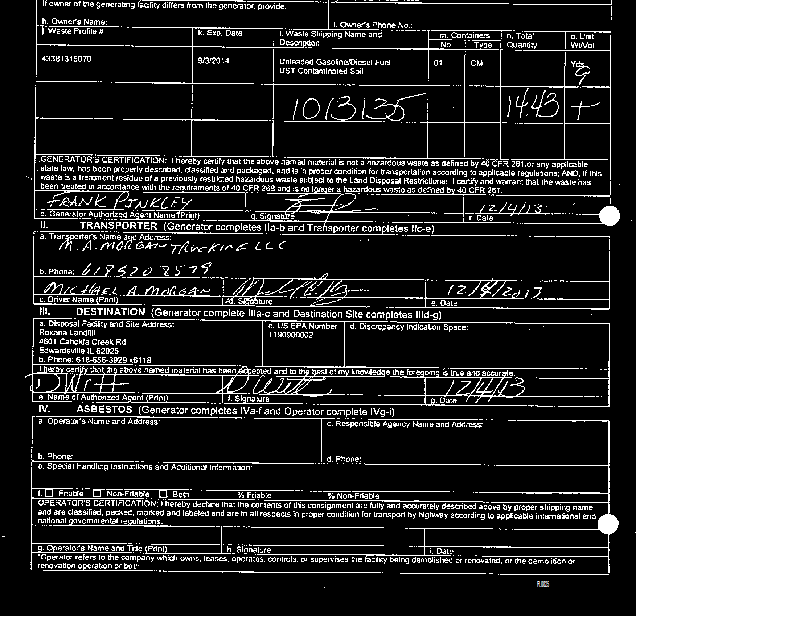 If owner of the generating facility differs from the generator, provide:
h. Owner's Name: i. Owner's Phone No.:
j. Waste Profile # k. Exp. Date l. Waste Shipping Name and Description m. Containers n. Total Quantity o. Unit Wt/Vol
No. Type
9/3/2014 Unleaded Gasoline/Diesel Fuel 01 CM Yds
UST Contaminated Soil
1013135 14.43
GENERATOR'S CERTIFICATION: I hereby certify that the above named material is not a hazardous waste as defined by 40 CFR 261 or any applicable
state law, has been properly described, classified and packaged, and is in proper condition for transportation according to applicable regulations; AND, if this
waste is a treatment residue of a previously restricted hazardous waste subject to the Land Disposal Restrictions. I certify and warrant that the waste has
been treated in accordance with the requirements of 40 CFR 268 and is no longer a hazardous waste as defined by 40 CFR 261.
FRANK PINKLEY 12/4/13
p. Generator Authorized Agent Name (Print) q. Signature r. Date
II. TRANSPORTER (Generator completes IIa-b and Transporter completes IIc-e)
a. Transporter's Name and Address:
M.A. MORGAN TRUCKING LLC
b. Phone: 618 520 8579
MICHAEL A MORGAN 12/4/2013
c. Driver Name (Print) d. Signature e. Date
III. DESTINATION (Generator complete IIIa-c and Destination Site completes IIId-g)
a. Disposal Facility and Site Address: c. US EPA Number d. Discrepancy Indication Space:
Roxana Landfill 1190900002
4601 Cahokia Creek Rd
Edwardsville IL 62025
b. Phone: 618-656-3929 x6118
I hereby certify that the above named material has been accepted and to the best of my knowledge the foregoing is true and accurate.
D Witt D Witt 12/4/13
e. Name of Authorized Agent (Print) f. Signature g. Date
IV. ASBESTOS (Generator completes IVa-f and Operator complete IVg-i)
a. Operator's Name and Address: c. Responsible Agency Name and Address:
b. Phone: d. Phone:
e. Special Handling Instructions and Additional Information:
f. Friable Non-Friable Both % Friable % Non-Friable
OPERATOR'S CERTIFICATION: I hereby declare that the contents of this consignment are fully and accurately described above by proper shipping name
and are classified, packed, marked and labeled and are in all respects in proper condition for transport by highway according to applicable international and
national governmental regulations.
g. Operator's Name and Title (Print) h. Signature i. Date
*Operator refers to the company which owns, leases, operates, controls, or supervises the facility being demolished or renovated, or the demolition or
renovation operation or both